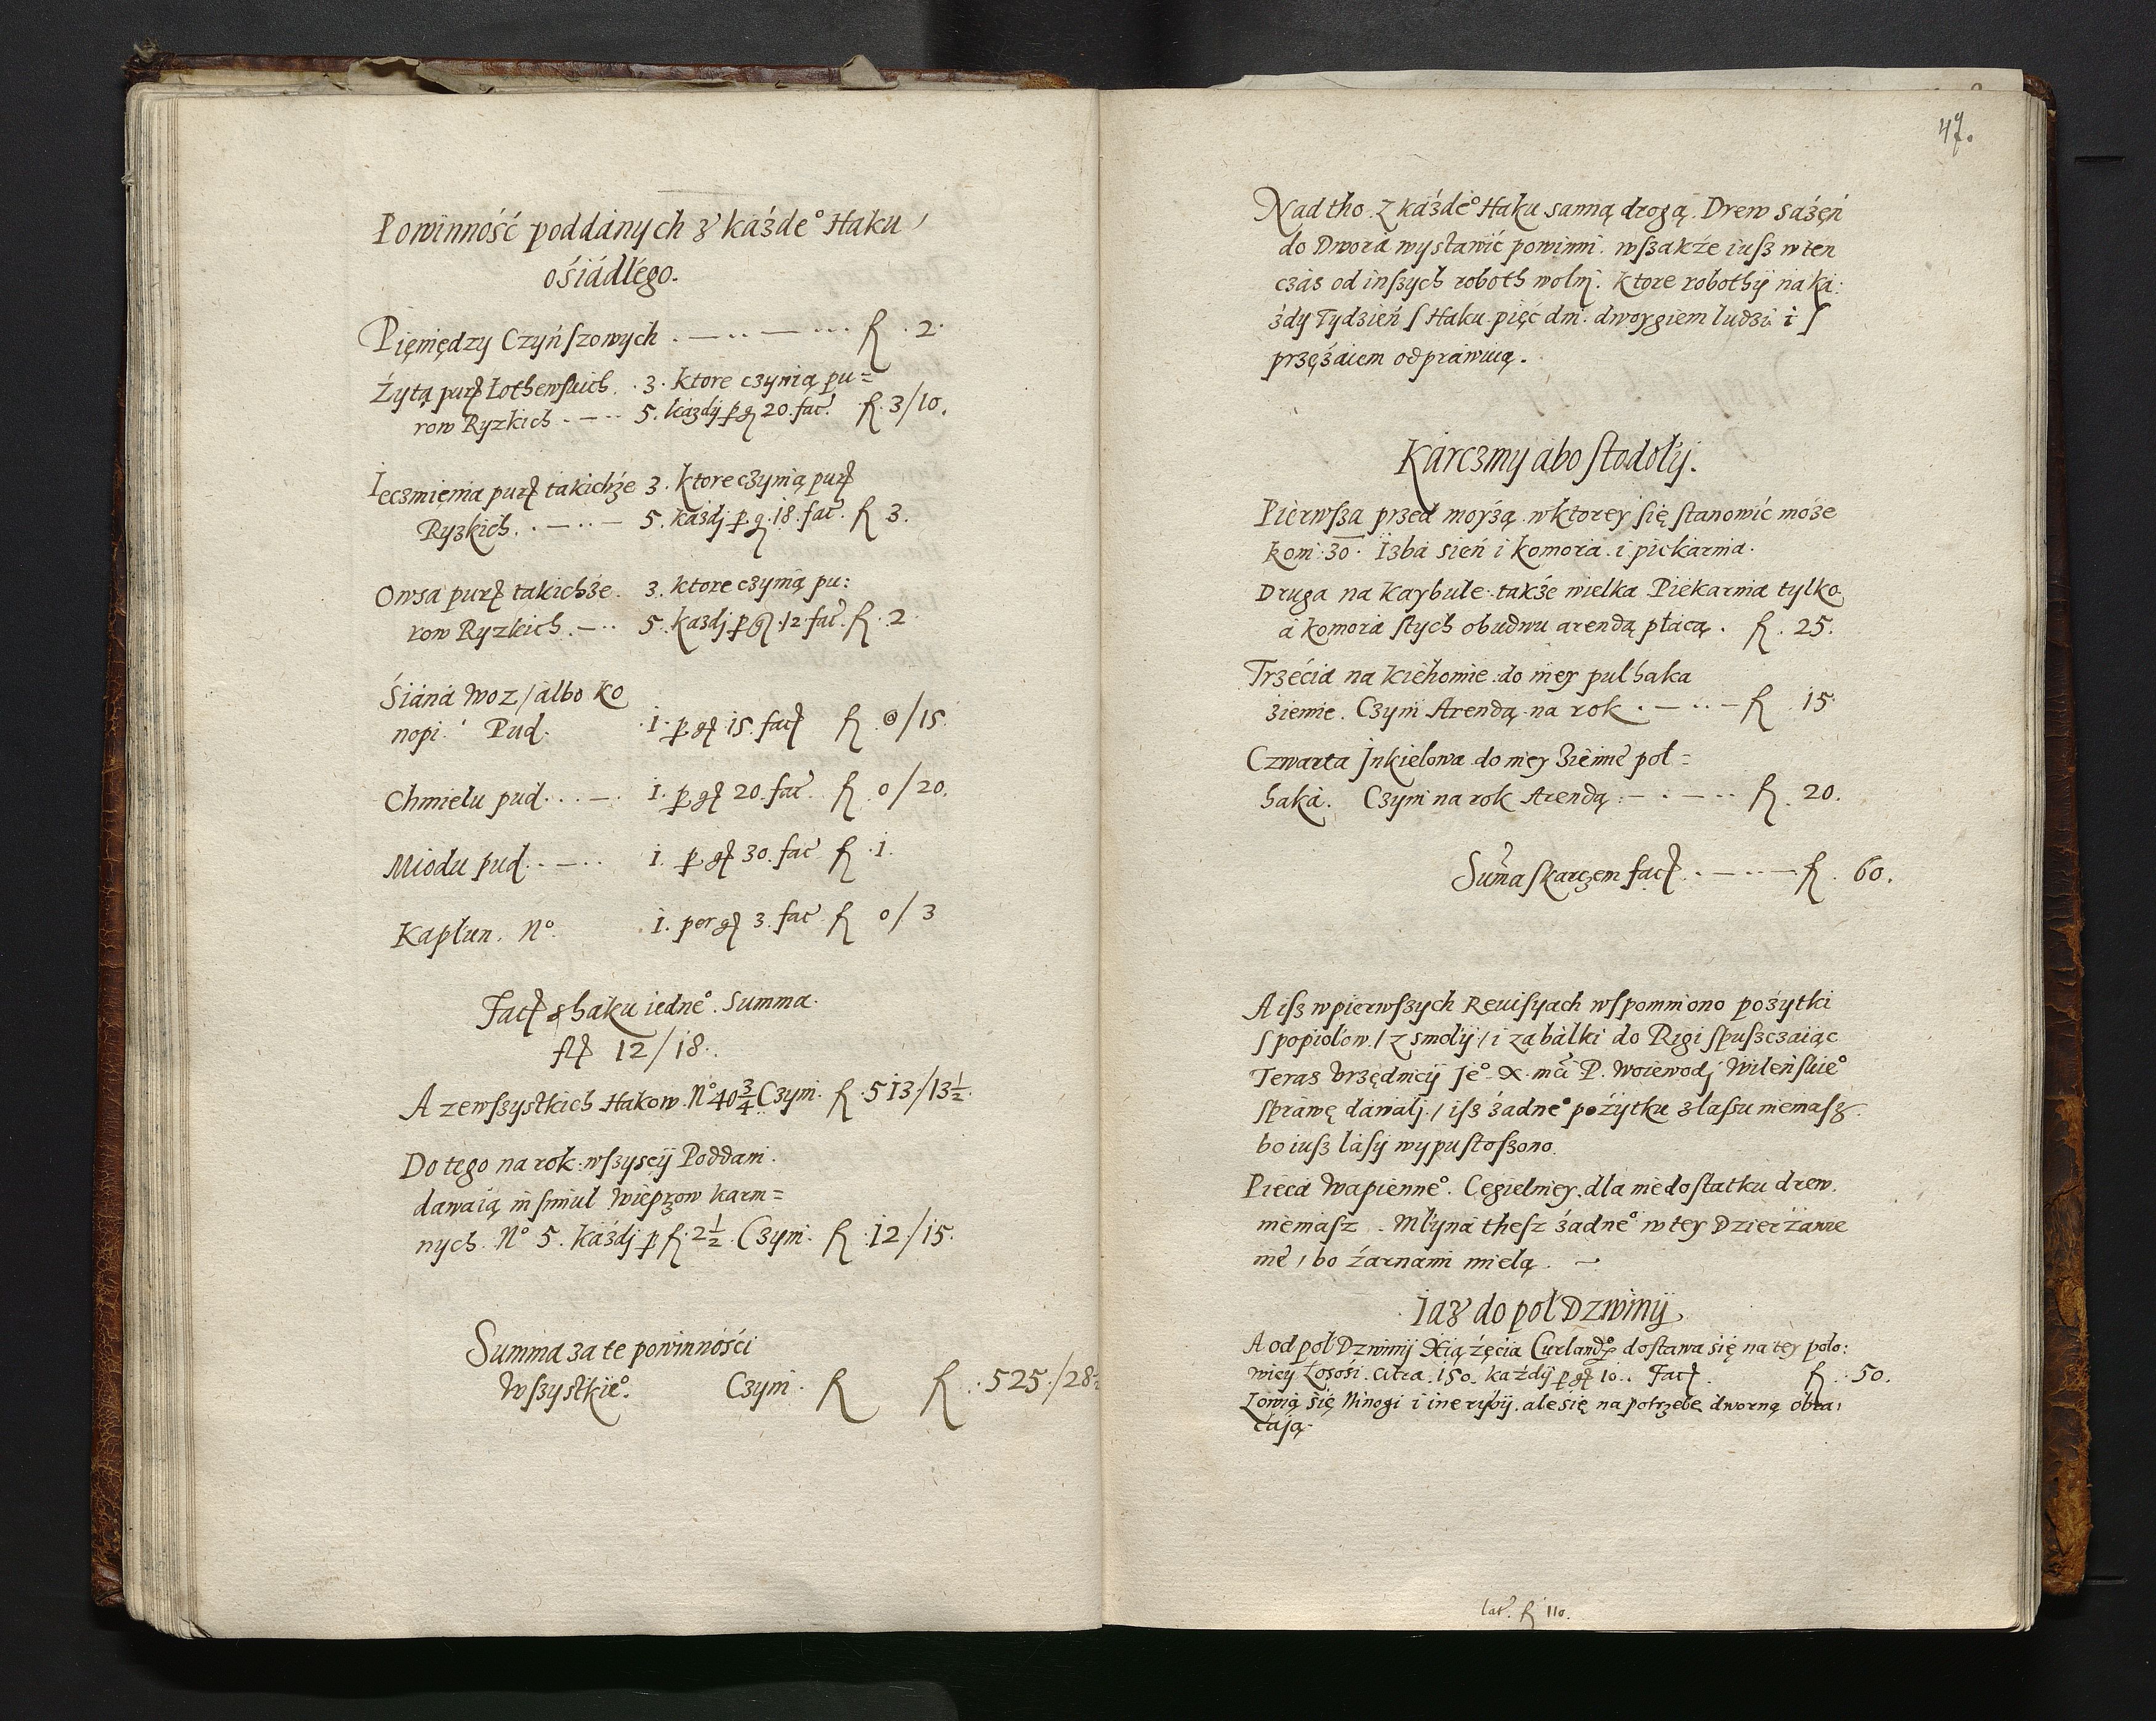 Powinność poddánych z káżde° Haku /
ośiádłégo.
Pięniędzy Czyńszowych . — . . — . . . fl . 2 .
Żytą pur. Łothewskich . 3 . ktore czynią pu=
row Ryzkich . — . . 5 . kazdÿ p g 20 . fac. fl . 3/10 .
Ieczmięnia pur. takichże 3 . ktore czynią pur.
Ryzkich . . — . . — 5 . każdj p . g . 18 . fac . fl 3 .
Owsa pur. takichże . 3 . ktore czynią pu:
row Ryzkich . — . . 5 . każdj p g . 12 . fac . fl . 2
Śiáná woz / álbo ko
nopi . Pud . . 1 . p g 15 . fac. fl . 0/15
Chmielu pud . . . — . 1 . p g 20 . fac . fl . 0/20 .
Miodu pud . . — . . 1 . p g 30 . fac fl . 1 .
Kapłun . N° . . 1 . per g 3 . fac fl 0/3
Fac. z haku iedne° . Summa .
fl. 12/18 .
A zewszystkich Hakow . N° 40 3/4 Czyni . fl . 513/13 1/2 .
Do tego na rok wszyscÿ Poddani .
dawáią in simul wieprzow karm=
nych . N° 5 . káżdj p fl . 2 1/2 . Czyni . fl . 12/15 .
Summa zá te powinnośći
wszystkie° . Czyni . fl fl . 525/28 1/2
47 .
Nad tho . z káżde° Haku sanną drogą . Drew sążęń
do Dworá wystáwić powinni . wszákże iusz w ten
czás od inszych roboth wolnj . ktore robothÿ ná ká:
żdy Tydzień s Haku pięć dni . dwoygiem ludzi i s
przężáiem odpráwuią .
Kárczmy ábo stodołÿ .
Pierwsza przed moyżą w ktorey się stanowić może
koni . 30 . Izbá sień i komorá . i piekarnia .
Druga na kaybule . tákże wielka Piekarnia tylko
á komorá s tych obudwu arendą płácą . fl . 25 .
Trzećia na kiehomie . do niey puł haka
ziemie . Czyni Arendą na rok . — . . — fl . 15 .
Czwarta Jnkielowa do niey ziemie poł=
haká . Czyni na rok Arendą . — . — . . fl . 20 .
Suma s karczem fac. . . — . . — fl . 60 .
A isz w pierwszych Reuisyach wspomniono pożytki
s popiołow / z smołÿ / i zá bálki do Rigi spuszczáiąc
Teraz vrzędnicÿ Je° X . mci P . Woiewodj Wileńskie°
spráwę dáwalj / isz żadne° pożytku z lassu niemasz
bo iusz lásÿ wypustoszono .
Piecá Wapienne° . Cęgielniey . dla niedostatku drew .
niemasz . Młyná thesz żadne° w tey Dzierżáwie
nie / bo żarnami mielą . —
Iaz do poł Dzwinÿ
A od poł Dzwinÿ Xiążęćia Curland. dostawa się na tey poło:
wicy Łosośi . citra . 150 . każdÿ p g 10 . . Fac. . fl . 50 .
Łowią się Minogi i ine rybÿ . ale się na potrzebę dworną obra/
cáją .
lat. fl 110 .